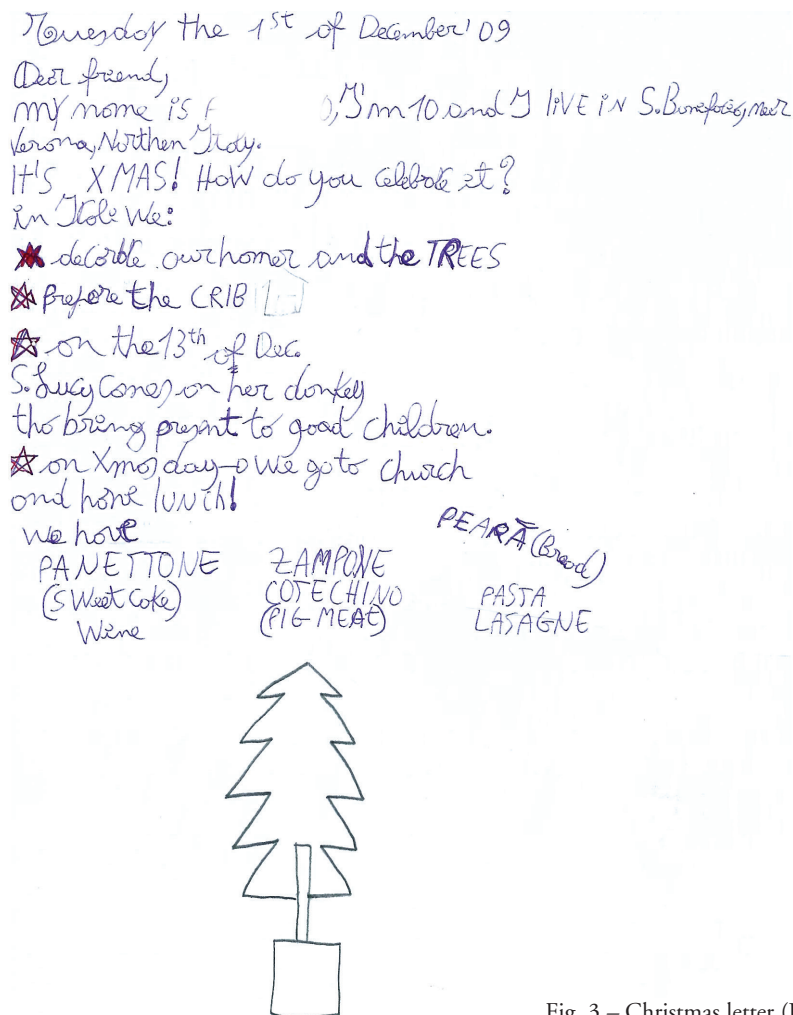 Tuesday the 1st of December' 09
Dear friend,
my name is F ), I'm 10 and I liVE iN S. Bonifacio, near
Verona, Northen Italy.
It'S XMAS! How do you celebrate it?
in Itale We:
decorate our homes and the TREES
prepare the CRIB
on the 13th of Dec.
S. Lucy comes on her donkey
tho bring present to good children.
on Xmas day → we go to church
and have luNch!
we have
PEARÀ (Bread)
PANETTONE ZAMPONE
(SWeet Cake) COTECHINO PASTA
Wine (PIG MEAt) LASAGNE
Fig. 3 – Christmas letter (I